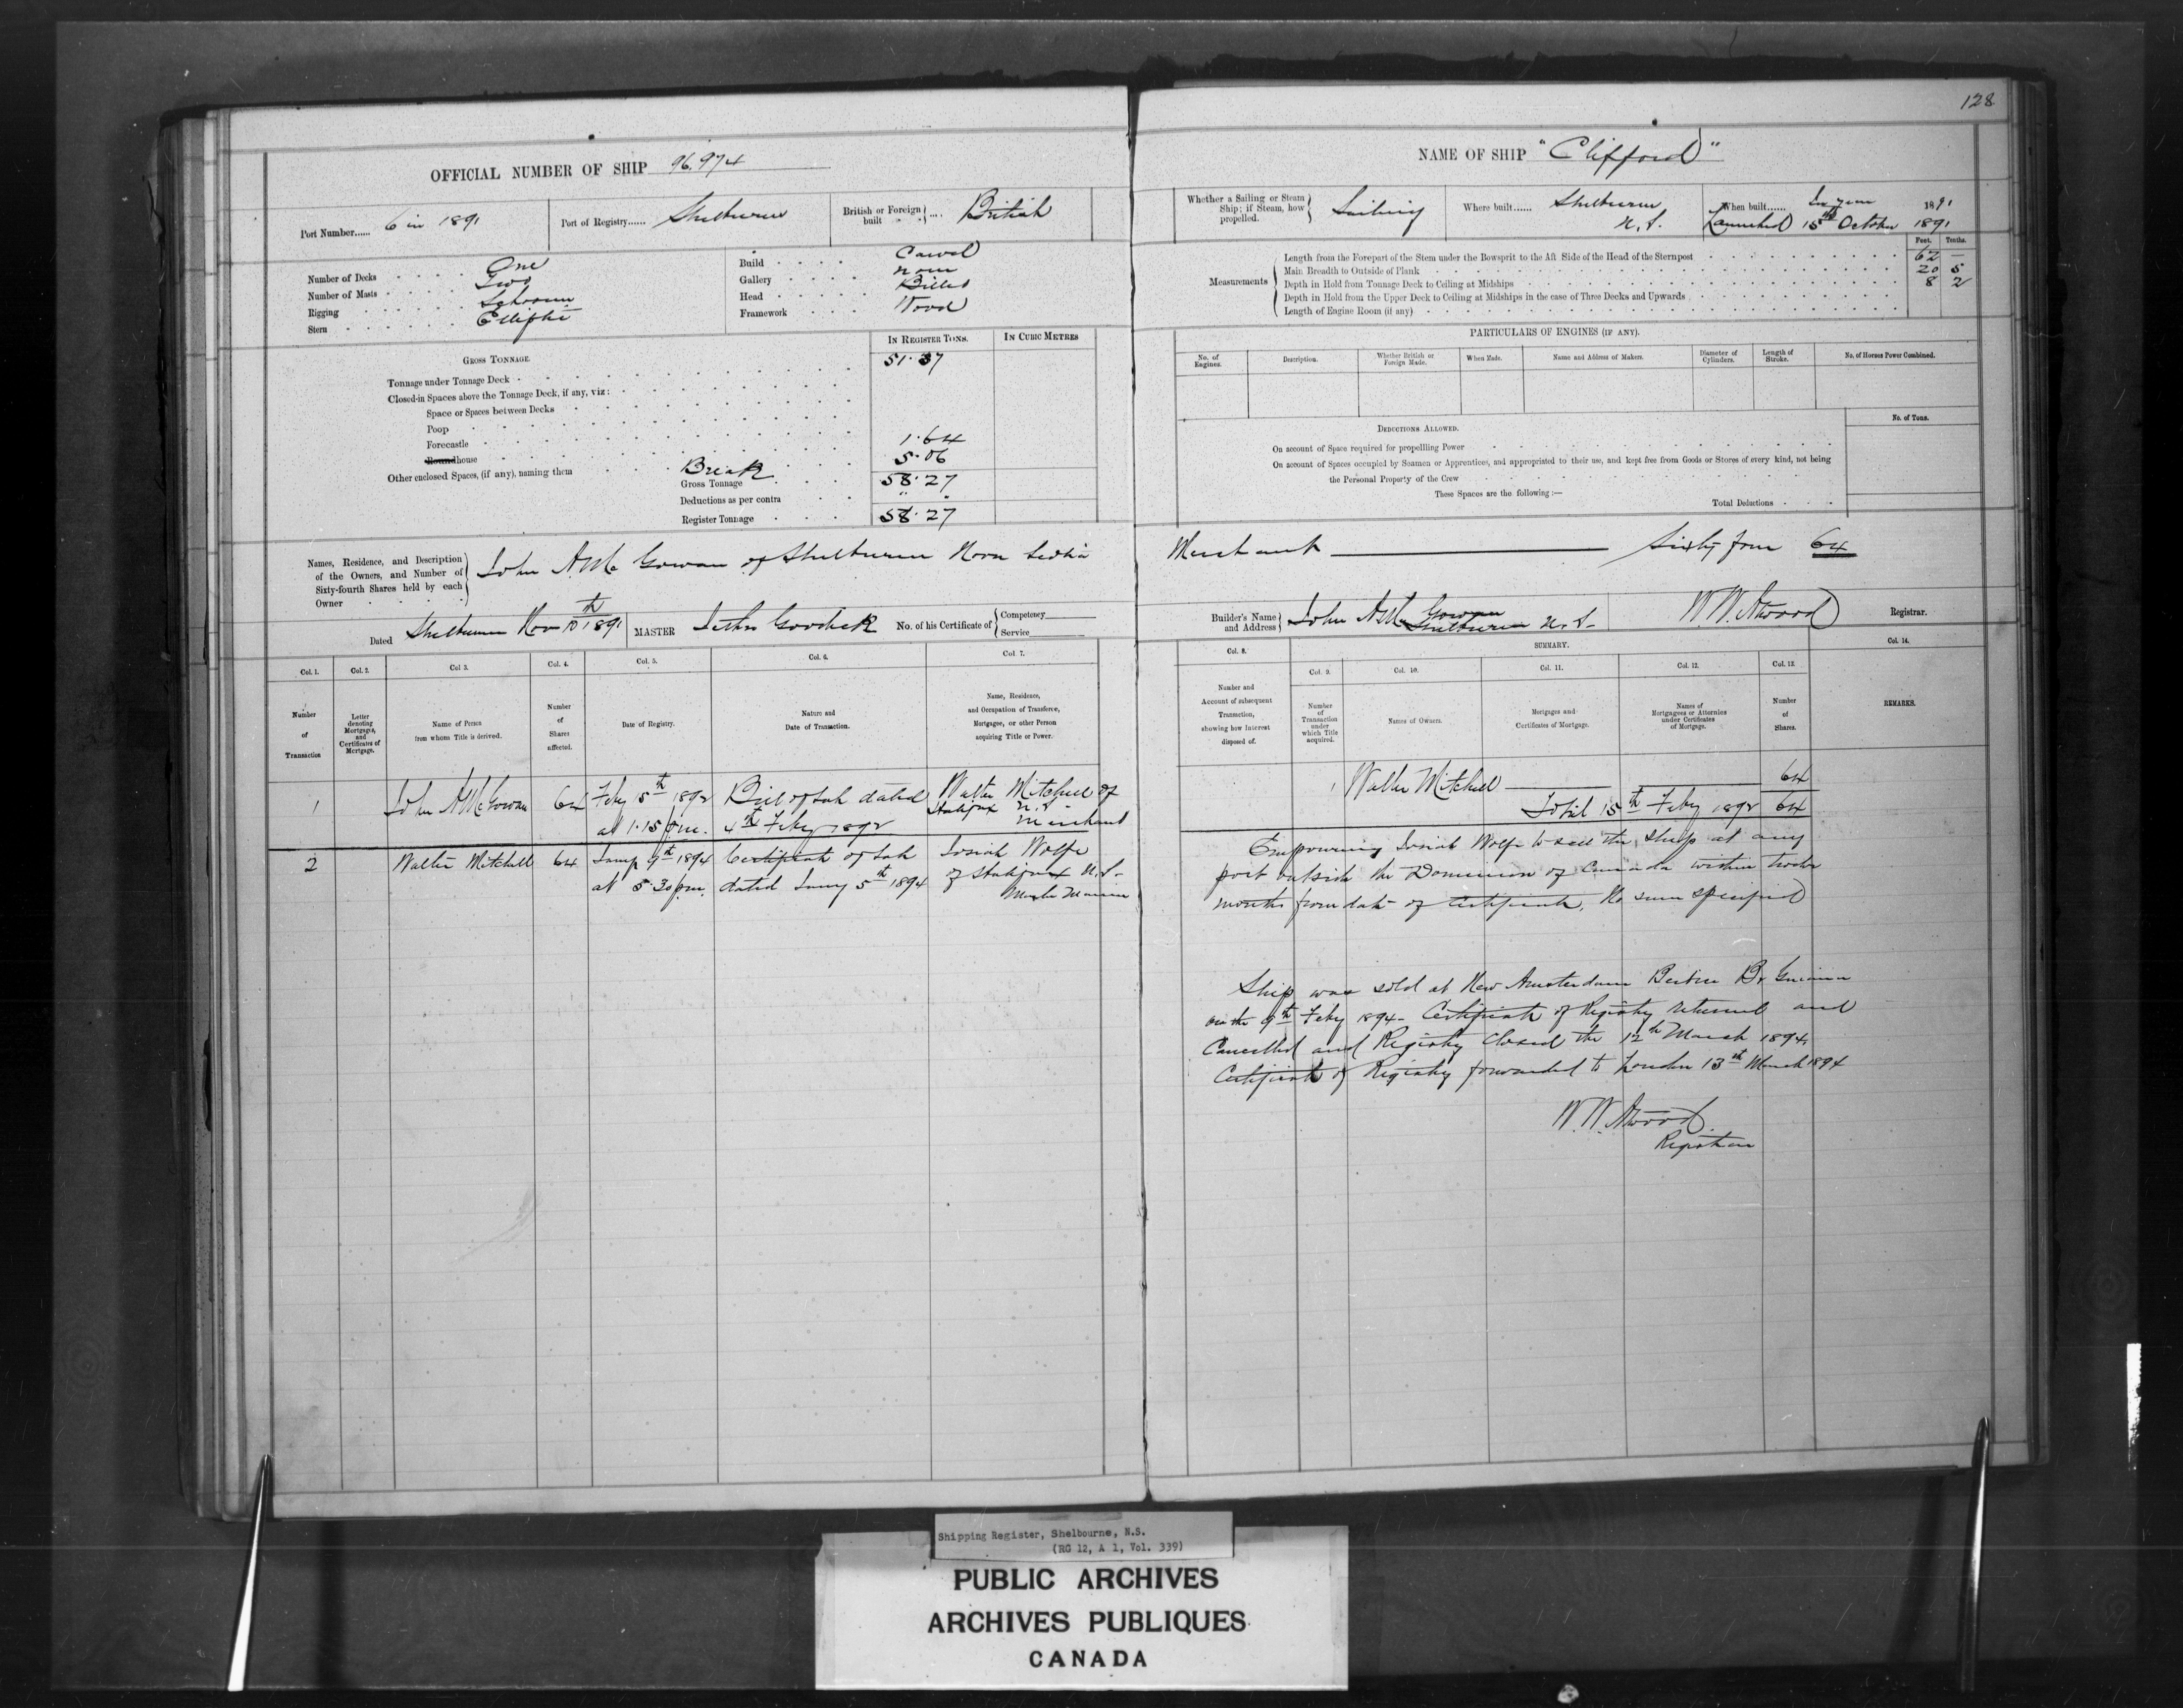 128
OFFICIAL NUMBER OF SHIP 96.974
Port Number...... 6 in 1891
Port of Registry...... Shelburne
British or Foreign built ... British
Number of Decks One
Number of Masts Two
Rigging Schooner
Stern Elliptic
Build Carvel
Gallery None
Head Billet
Framework Wood
IN REGISTER TONS.
IN CUBIC METRES
GROSS TONNAGE.
Tonnage under Tonnage Deck 51.57
Closed-in Spaces above the Tonnage Deck, if any, viz:
Space or Spaces between Decks
Poop
Forecastle
Roundhouse 1.64
Other enclosed Spaces, (if any), naming them Break 5.06
Gross Tonnage 58.27
Deductions as per contra " "
Register Tonnage 58.27
Names, Residence, and Description
of the Owners, and Number of
Sixty-fourth Shares held by each
Owner
John A. McGowan of Shelburne Nova Scotia
Dated Shelburne Nov 10th 1891
MASTER
No. of his Certificate of
Competency
Service
NAME OF SHIP "Clifford"
Whether a Sailing or Steam
Ship; if Steam, how
propelled.
Sailing
Where built...... Shelburne
N.S.
When built...... In year 1891
Launched 15th October 1891
Feet. Tenths.
Measurements
Length from the Forepart of the Stem under the Bowsprit to the Aft Side of the Head of the Sternpost 62 —
Main Breadth to Outside of Plank 20 5
Depth in Hold from Tonnage Deck to Ceiling at Midships 8 2
Depth in Hold from the Upper Deck to Ceiling at Midships in the case of Three Decks and Upwards
Length of Engine Room (if any)
PARTICULARS OF ENGINES (IF ANY).
No. of Engines.
Description.
Whether British or Foreign Made.
When Made.
Name and Address of Makers.
Diameter of Cylinders.
Length of Stroke.
No. of Horses Power Combined.
DEDUCTIONS ALLOWED.
No. of Tons.
On account of Space required for propelling Power
On account of Spaces occupied by Seamen or Apprentices, and appropriated to their use, and kept free from Goods or Stores of every kind, not being
the Personal Property of the Crew
These Spaces are the following:—
Total Deductions
Merchant Sixty four 64
Builder's Name and Address John A McGowan
Shelburne N.S.
W.W. Atwood Registrar.
Col. 1.
Number of Transaction
Col. 2.
Letter denoting Mortgages, and Certificates of Mortgage.
Col. 3.
Name of Person from whom Title is derived.
Col. 4.
Number of Shares affected.
Col. 5.
Date of Registry.
Col. 6.
Nature and Date of Transaction.
Col. 7.
Name, Residence, and Occupation of Transferee, Mortgagee, or other Person acquiring Title or Power.
Col. 8.
Number and Account of subsequent Transaction, showing how Interest disposed of.
SUMMARY.
Col. 9.
Number of Transaction under which Title acquired.
Col. 10.
Names of Owners.
Col. 11.
Mortgages and Certificates of Mortgage.
Col. 12.
Names of Mortgagees or Attornies under Certificates of Mortgage.
Col. 13.
Number of Shares.
Col. 14.
REMARKS.
1 John A McGowan 64 Feby 15th 1892 Bill of Sale dated Walter Mitchell of
at 1.15 p.m. 4th Feby 1892 Halifax N.S. Merchant
1 Walter Mitchell 64
Total 15th Feby 1892 64
2 Walter Mitchell 64 Jany 9th 1894 Certificate of Sale Josiah Wolfe
at 5.30 p.m. dated Jany 5th 1894 of Halifax N.S.
Master Mariner
Empowering Josiah Wolfe to sell the ship at any
port outside the Dominion of Canada within twelve
months from date of Certificate. No sum specified
Ship was sold at New Amsterdam Berbice Br Guiana
on the 9th Feby 1894 - Certificate of Registry returned and
Cancelled and Registry Closed the 12th March 1894.
Certificate of Registry forwarded to London 13th March 1894
W.W. Atwood.
Registrar
Shipping Register, Shelbourne, N.S.
(RG 12, A 1, Vol. 339)
PUBLIC ARCHIVES
ARCHIVES PUBLIQUES
CANADA